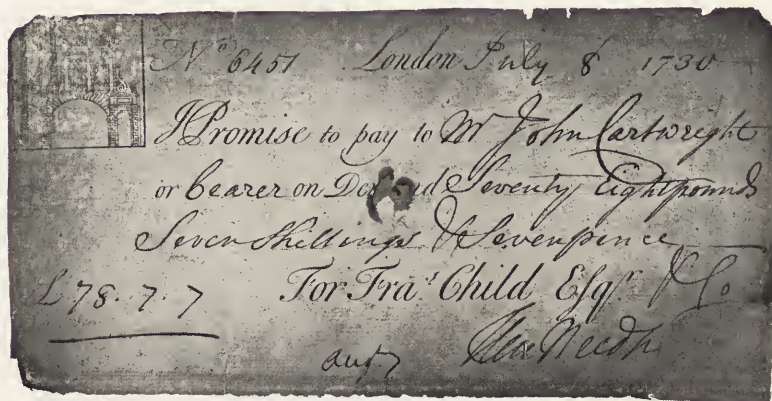 No 6451 London July 8 1730
I Promise to pay to Mr John Cartwright
or bearer on Demand Seventy Eight pounds
Seven Shillings & Sevenpence
£78.7.7 For Fras Child Esqr & Co